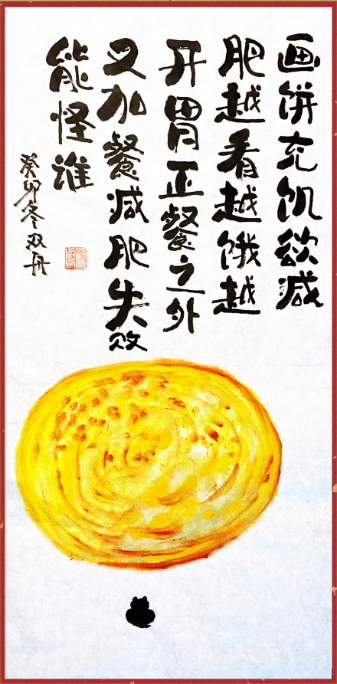 画饼充饥欲减
肥越看越饿越
开胃正餐之外
又加餐减肥失败
能怪谁
癸卯冬双丹